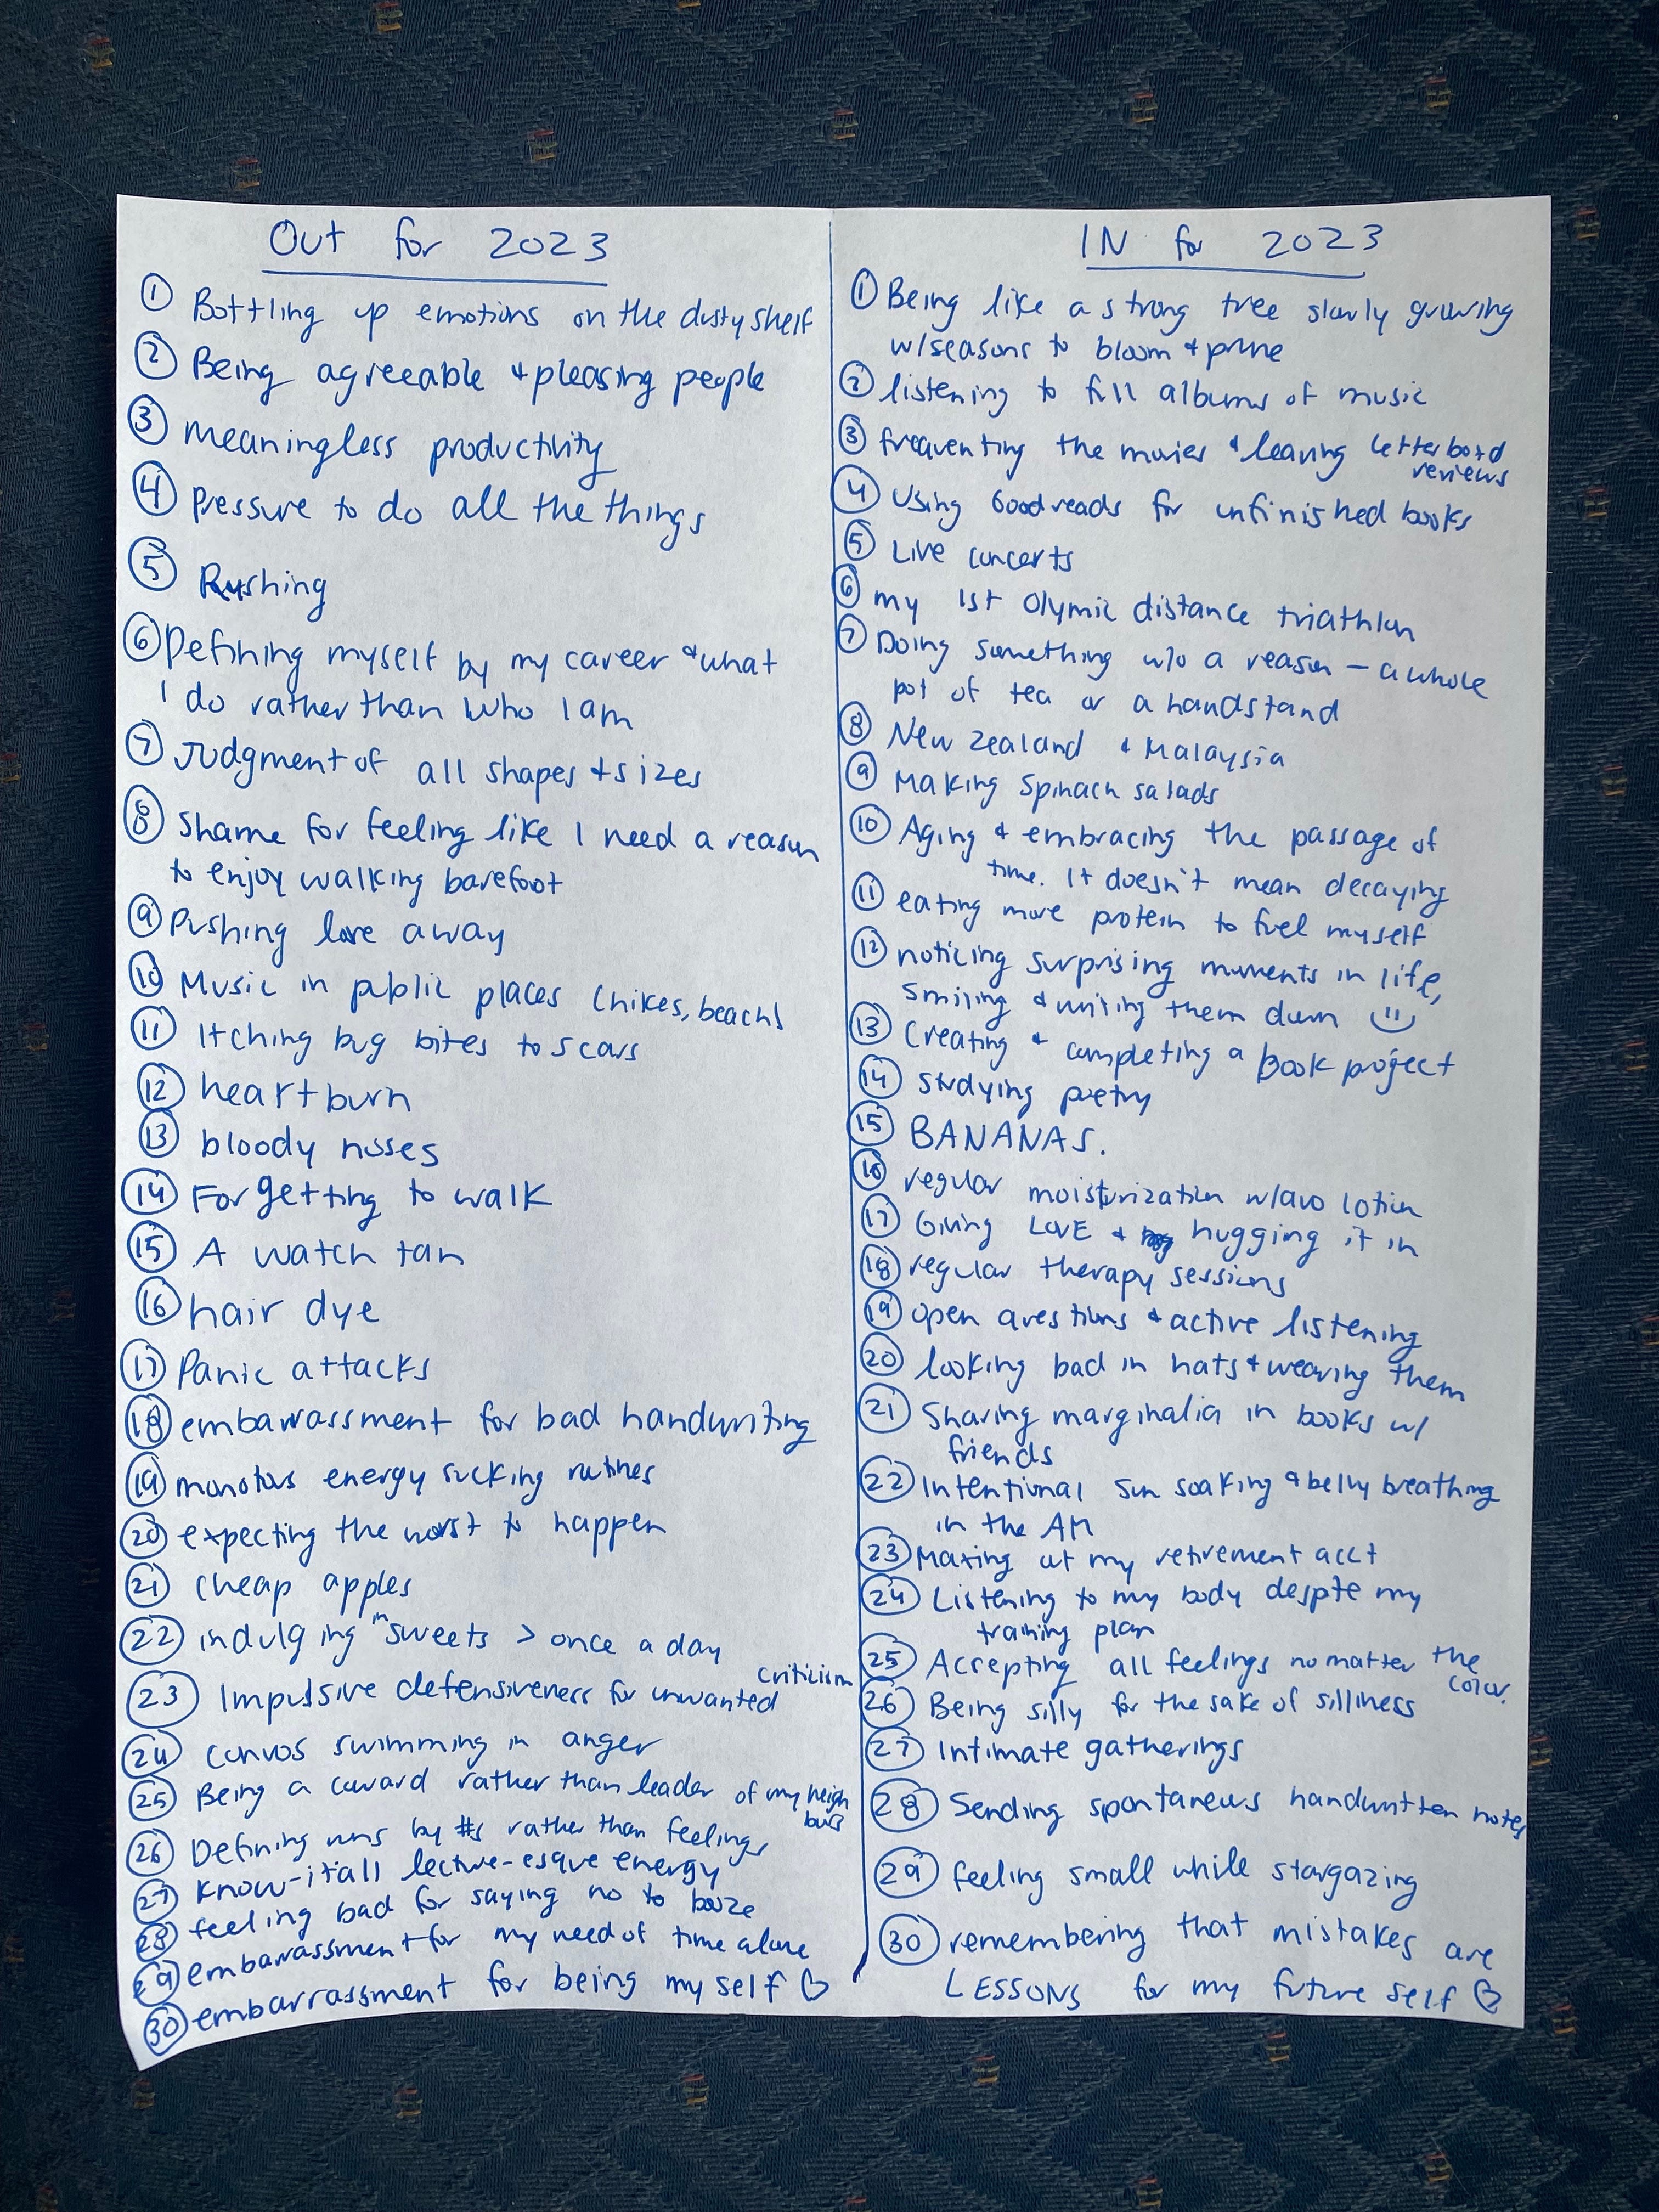 Out for 2023
① Bottling up emotions on the dusty shelf
② Being agreeable + pleasing people
③ Meaningless productivity
④ Pressure to do all the things
⑤ Rushing
⑥ Defining myself by my career + what
I do rather than who I am
⑦ Judgment of all shapes + sizes
⑧ Shame for feeling like I need a reason
to enjoy walking barefoot
⑨ Pushing love away
⑩ Music in public places (hikes, beach)
⑪ Itching bug bites to scars
⑫ heartburn
⑬ bloody noses
⑭ Forgetting to walk
⑮ A watch tan
⑯ hair dye
⑰ Panic attacks
⑱ embarrassment for bad handwriting
⑲ monotous energy sucking routines
⑳ expecting the worst to happen
㉑ cheap apples
㉒ indulging in sweets > once a day
㉓ Impulsive defensiveness for unwanted criticism
㉔ convos swimming in anger
㉕ Being a coward rather than leader of my neigh
bors
㉖ Defining runs by #s rather than feelings
㉗ know-it-all lecture-esque energy
㉘ feeling bad for saying no to booze
㉙ embarrassment for my need of time alone
㉚ embarrassment for being my self ♡
IN for 2023
① Being like a strong tree slowly growing
w/seasons to bloom + prune
② listening to full albums of music
③ frequenting the movies + leaving letterboxd
reviews
④ Using Goodreads for unfinished books
⑤ Live concerts
⑥ my 1st Olymic distance triathlon
⑦ Doing something w/o a reason – a whole
pot of tea or a handstand
⑧ New Zealand + Malaysia
⑨ Making Spinach salads
⑩ Aging + embracing the passage of
time. It doesn't mean decaying
⑪ eating more protein to fuel myself
⑫ noticing surprising moments in life,
smiling + writing them down :)
⑬ Creating + completing a book project
⑭ studying poetry
⑮ BANANAS.
⑯ regular moisturization w/avo lotion
⑰ Giving LOVE + hugging it in
⑱ regular therapy sessions
⑲ open questions + active listening
⑳ looking bad in hats + wearing them
㉑ Sharing marginalia in books w/
friends
㉒ Intentional sun soaking + belly breathing
in the AM
㉓ Maxing out my retirement acct
㉔ Listening to my body despite my
training plan
㉕ Accepting all feelings no matter the
color.
㉖ Being silly for the sake of silliness
㉗ Intimate gatherings
㉘ Sending spontaneous handwritten notes
㉙ feeling small while stargazing
㉚ remembering that mistakes are
LESSONS for my future self ♡